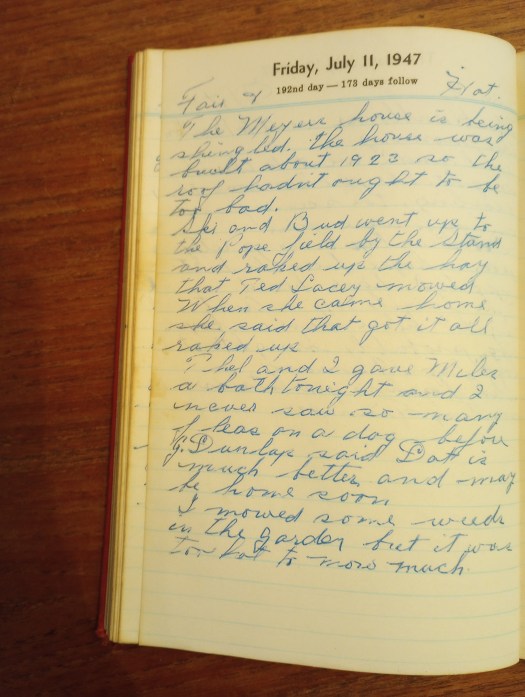 Friday, July 11, 1947
192nd day — 173 days follow
Fair & Hot.
The Meyers house is being
shingled. the house was
built about 1923 so the
roof hadn't ought to be
too bad.
and Bud went up to
the Pope field by the Stand
and raked up the hay
that Ted Lacey mowed
When she came home
she said that got it all
raked up.
Thel and I gave Miles
a bath tonight and I
never saw so many
fleas on a dog before
Dunlap said Dot is
much better and may
be home soon
I mowed some weeds
in the garden but it was
too hot to mow much.